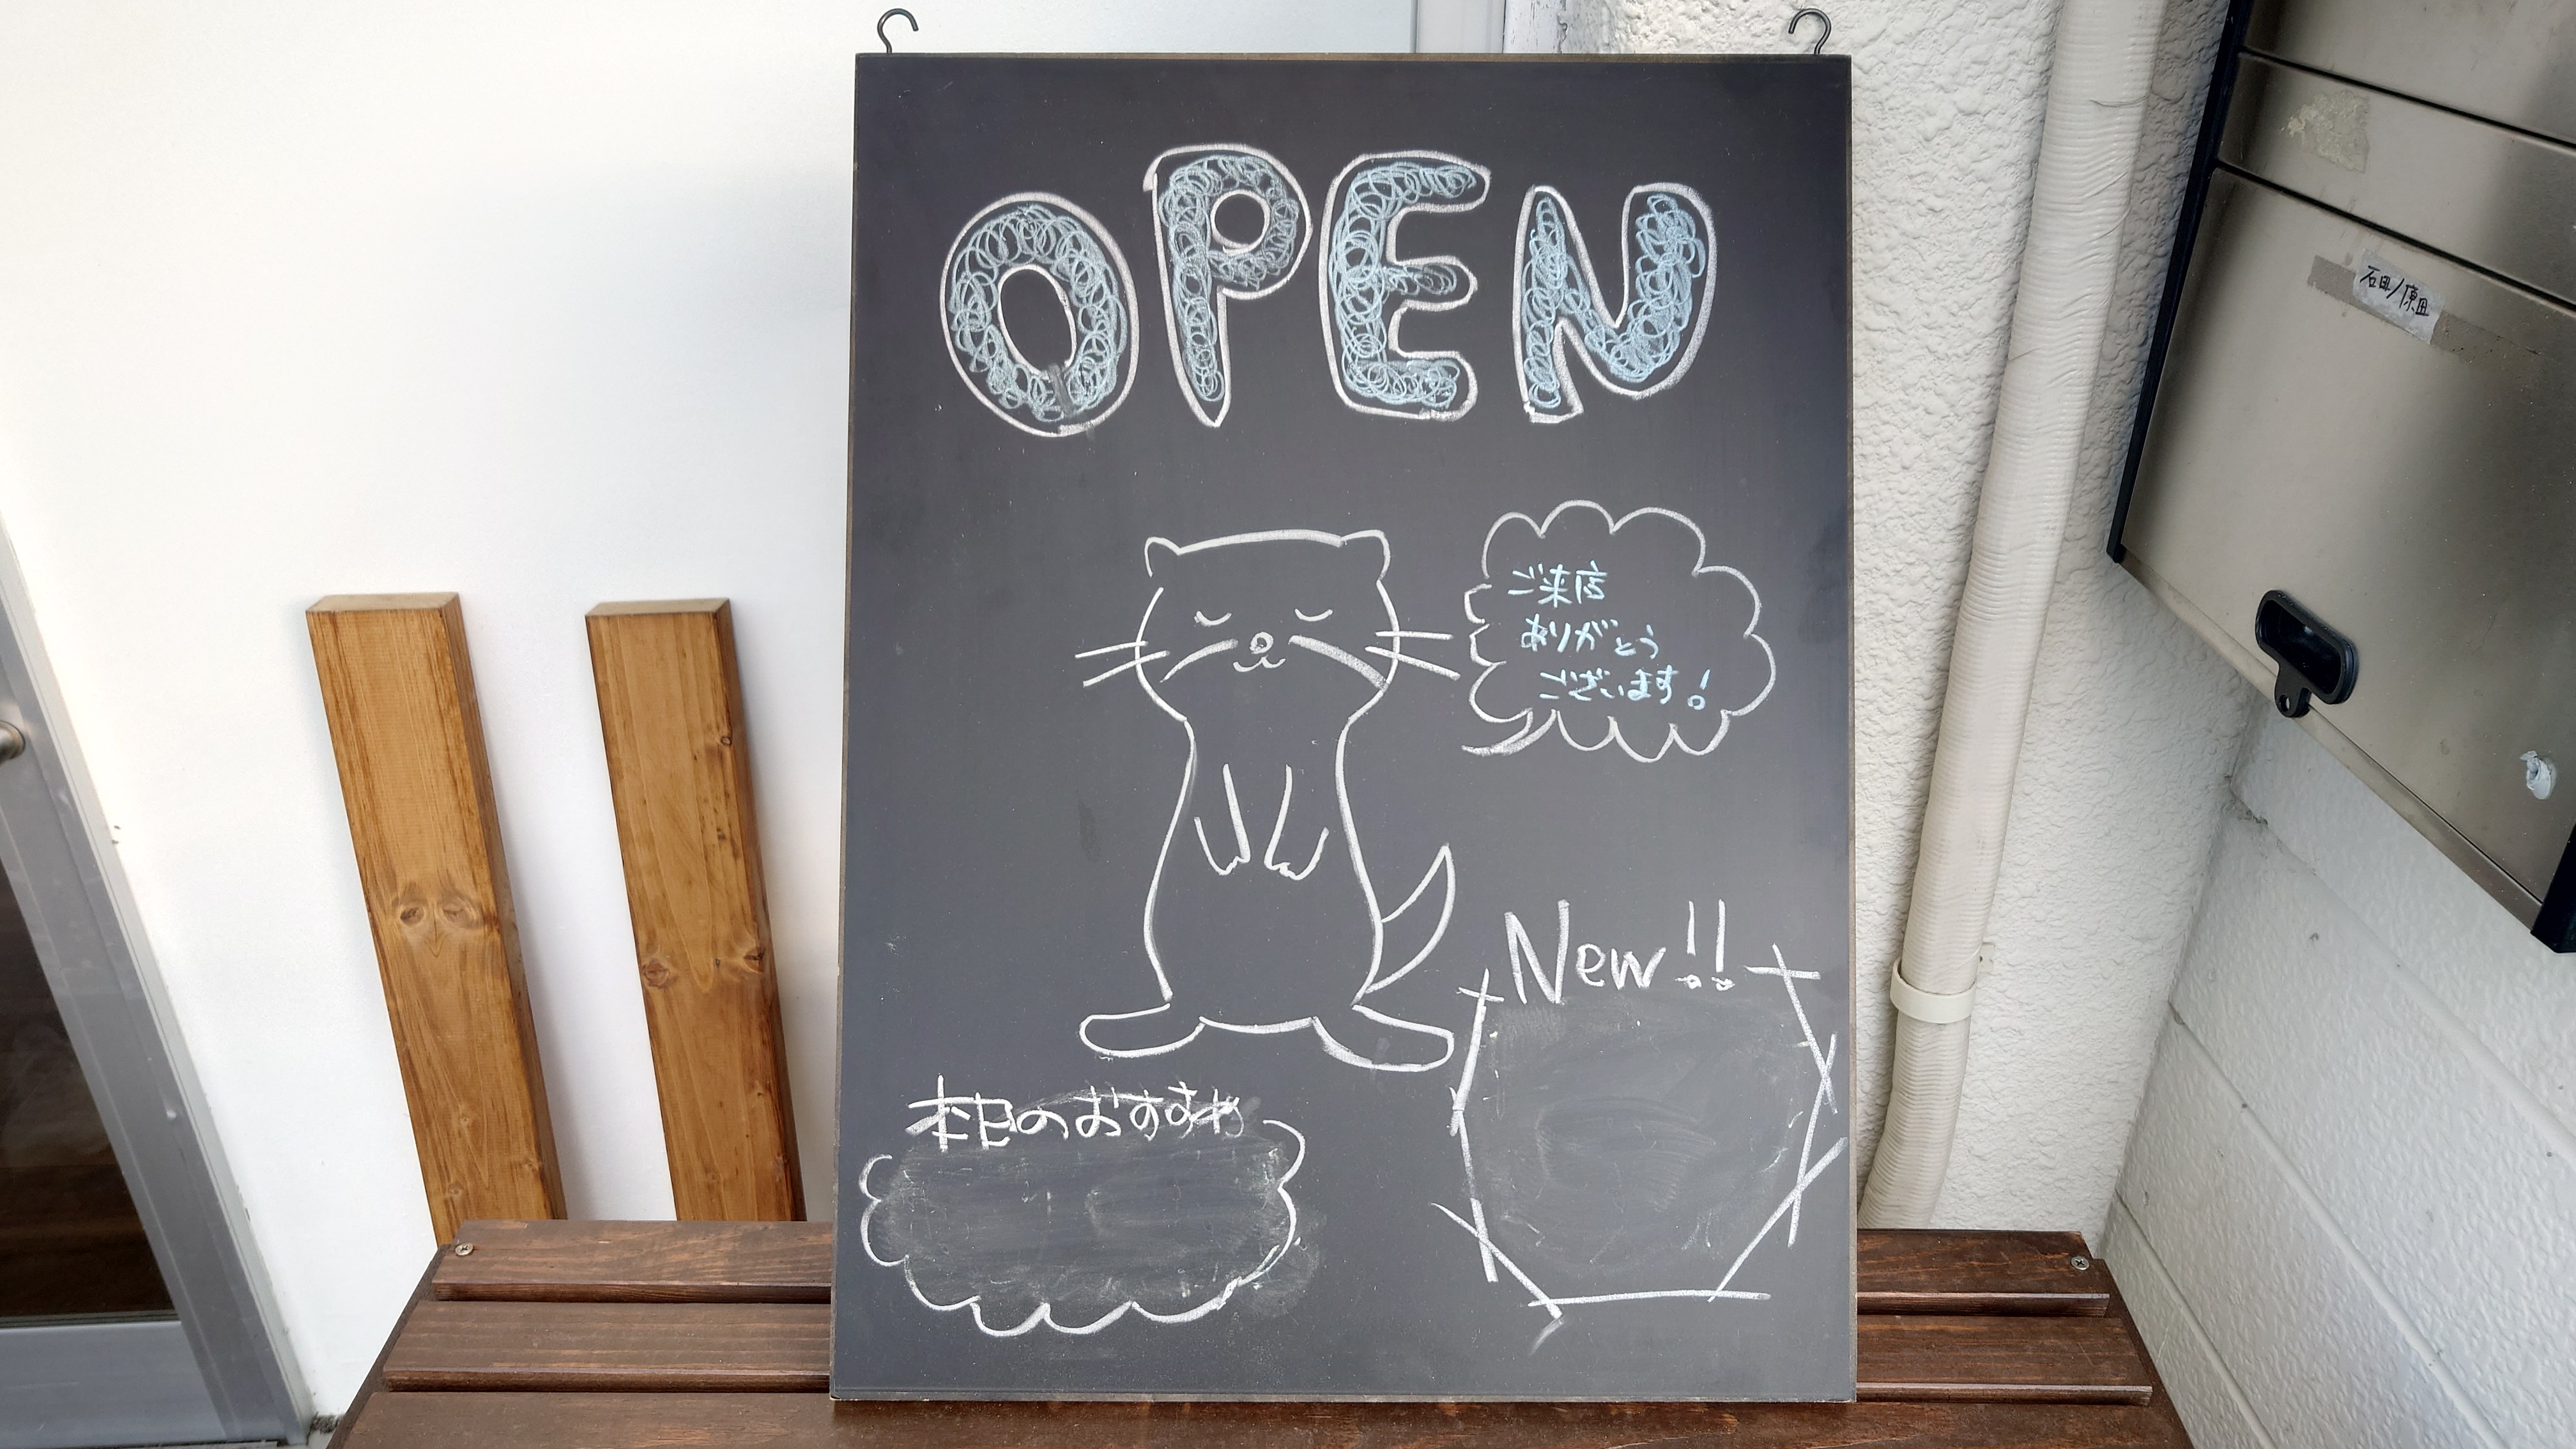 OPEN
ご来店
ありがとう
ございます!
New!!
本日のおすすめ